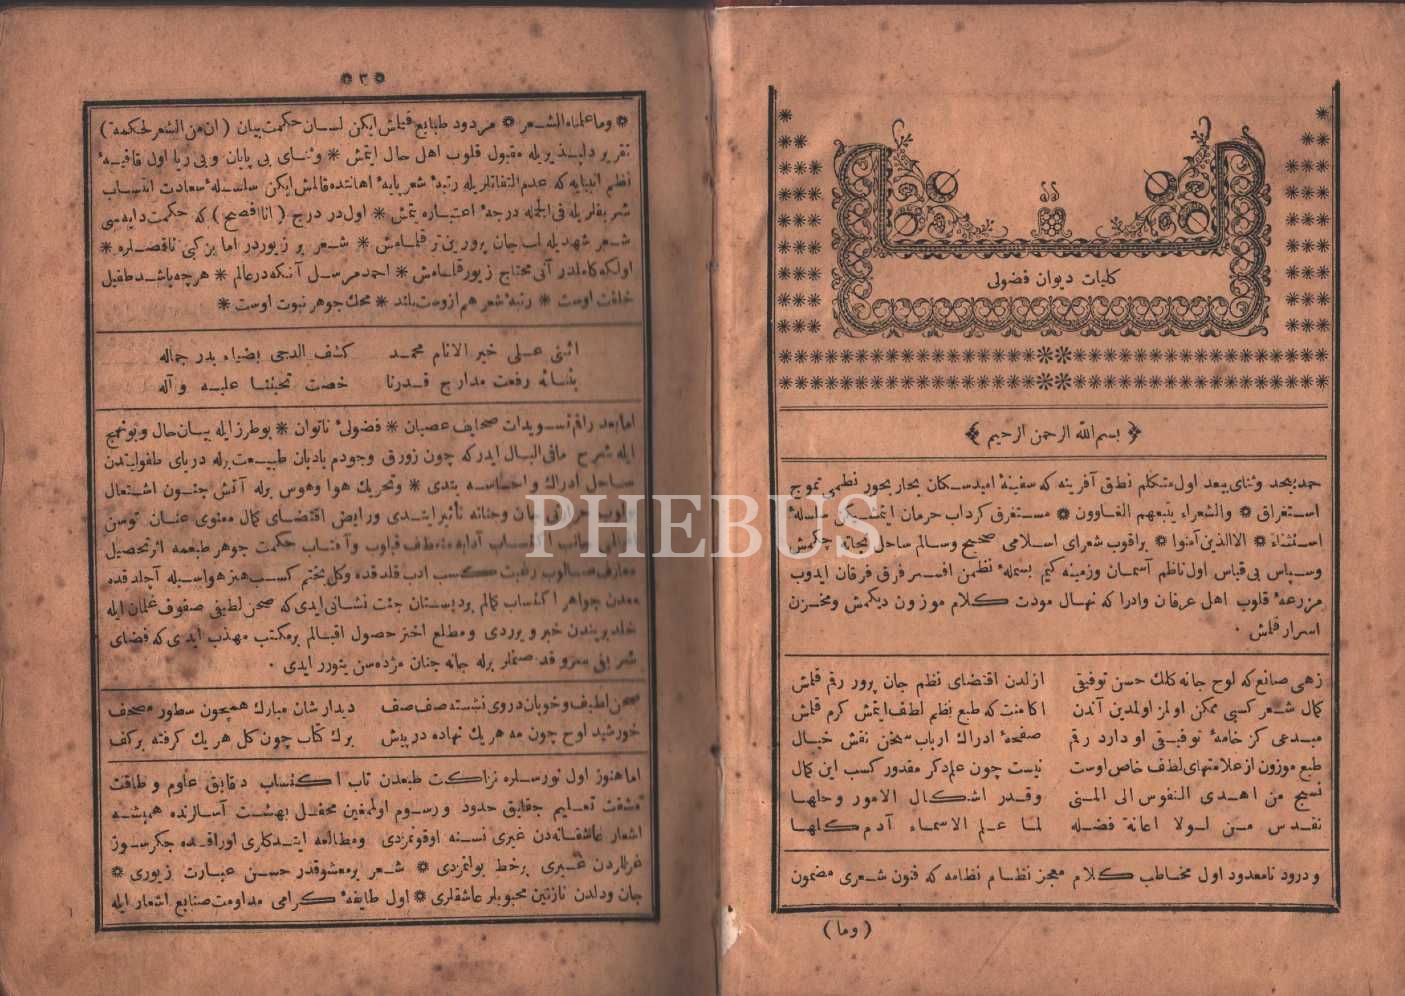 كليات ديوان فضولى
بسم الله الرحمن الرحيم
حمد بيحد وثناى بيعد اول متكلم نطق آفرينه كه سفينهٔ اميد سكان بحار بحور نظمى تموج
استغراق * والشعراء يتبعهم الغاوون * مستغرق كرداب حرمان ايتمشكن سلسلهٔ
استثناء * الا الذين آمنوا * براقوب شعراى اسلامى صحيح وسالم ساحل نجاته چكمش
وسپاس بى قياس اول ناظم آسمان وزمينه كيم بسملهٔ نظمن افسر فرق فرقان ايدوب
مزرعهٔ قلوب اهل عرفان وادرا كه نهال مودت كلام موزون ديكمش ومخزن
اسرار قلمش ٠
زهى صانع كه لوح جانه كلك حسن توفيقى ازلدن اقتضاى نظم جان پرور رقم قلمش
كمال شعر كسبى ممكن اولمز اولمدين آندن اكا منت كه طبع نظيم لطف ايتمش كرم قلمش
مبدعى كز خامهٔ توفيقى او دارد رقم صفحهٔ ادراك ارباب سخن نقش خيال
طبع موزون از علامتهاى لطف خاص اوست نيست چون علم دكر مقدور كسب اين كمال
نسبح من اهدى النفوس الى المنى وقدر اشكال الامور وحلها
نقدس من لولا اعانة فضله لما علم الاسماء آدم كلها
ودرود نامعدود اول مخاطب كلام معجز نظام نظامه كه فنون شعرى مضمون
(وما)
* ٣ *
* وما علمناه الشعر * مردود طبايع قيلمش ايكن لسان حكمت بيان (ان من الشعر لحكمة)
تقرير دلپذيريله مقبول قلوب اهل حال ايتمش * وثناى بى پايان وبى ريا اول قافيهٔ
نظم انبيايه كه عدم التفاتلريله رتبهٔ شعر پايهٔ اهانتده قالمش ايكن سلسلهٔ سعادت انتساب
شريفلريله فى الجمله درجهٔ اعتباره يتمش * اول در درج (انا افصح) كه حكمت دايه سى
شعر شهديله لب جان پرورين تر قلمامش * شعر بر زيوردر اما بن كبى ناقصلره *
اولكه كاملدر آنى محتاج زيور قلمامش * احمد مرسل آنكه در عالم * هرچه باشد طفيل
خلقت اوست * رتبهٔ شعر هم ازوست بلند * محك جوهر نبوت اوست *
اثنى على خير الانام محمد كشف الدجى بضياء بدر جماله
بثنائه رفعت مدارج قدرنا خصت تحيتنا عليه وآله
اما بعد راقم تسويدات صحايف عصيان * فضولئ ناتوان * بو طرز ايله بيان حال وبو نهج
ايله شرح مافى البال ايدركه چون زورق وجودم بادبان طبيعت برله درياى طفوليتدن
ساحل ادراك واحساسه يتدى * وتحريك هوا وهوس برله آتش جنون اشتعال
جان وجنانه تأثير ايتدى ورايض اقتضاى كمال معنوى عنان توسن
اكتساب آدابه منعطف قيلوب وآفتاب حكمت جوهر طبعمه اثر تحصيل
معارف صالوب رغبت كسب ادب قلدقده وكل بختم كسب هنر هواسيله آچلدقده
معدن جواهر اكتساب كمالم بر دبستان جنت نشانى ايدى كه صحن لطيفى صفوف غلمان ايله
خلد بريندن خبر ويرردى ومطلع اختر حصول اقبالم بر مكتب مهذب ايدى كه فضاى
شريفى سرو قد صنملر برله جانه جنان مژده سن يتورر ايدى ٠
صحن لطيف وخوبان دروى نشسته صف صف ديدارشان مبارك همچون سطور مصحف
خورشيد اوج چون مه هريك نهاده در پيش برك كتاب چون كل هريك كرفته بركف
اما هنوز اول نورسلره نزاكت طبعدن تاب اكتساب دقايق علوم وطاقت
مشقت تعليم حقايق حدود ورسوم اولمغين محفل بهشت آسارنده هميشه
اشعار عاشقانه دن غيرى نسنه اوقونمزدى ومطالعه ايتدكلرى اوراقده جكرسوز
غزللردن غيرى برخط بولنمزدى * شعر بر معشوقدر حسن عبارت زيورى *
جان ودلدن نازنين محبوبلر عاشقلرى * اول طايفهٔ كرامى مداومت صنايع اشعار ايله
PHEBUS